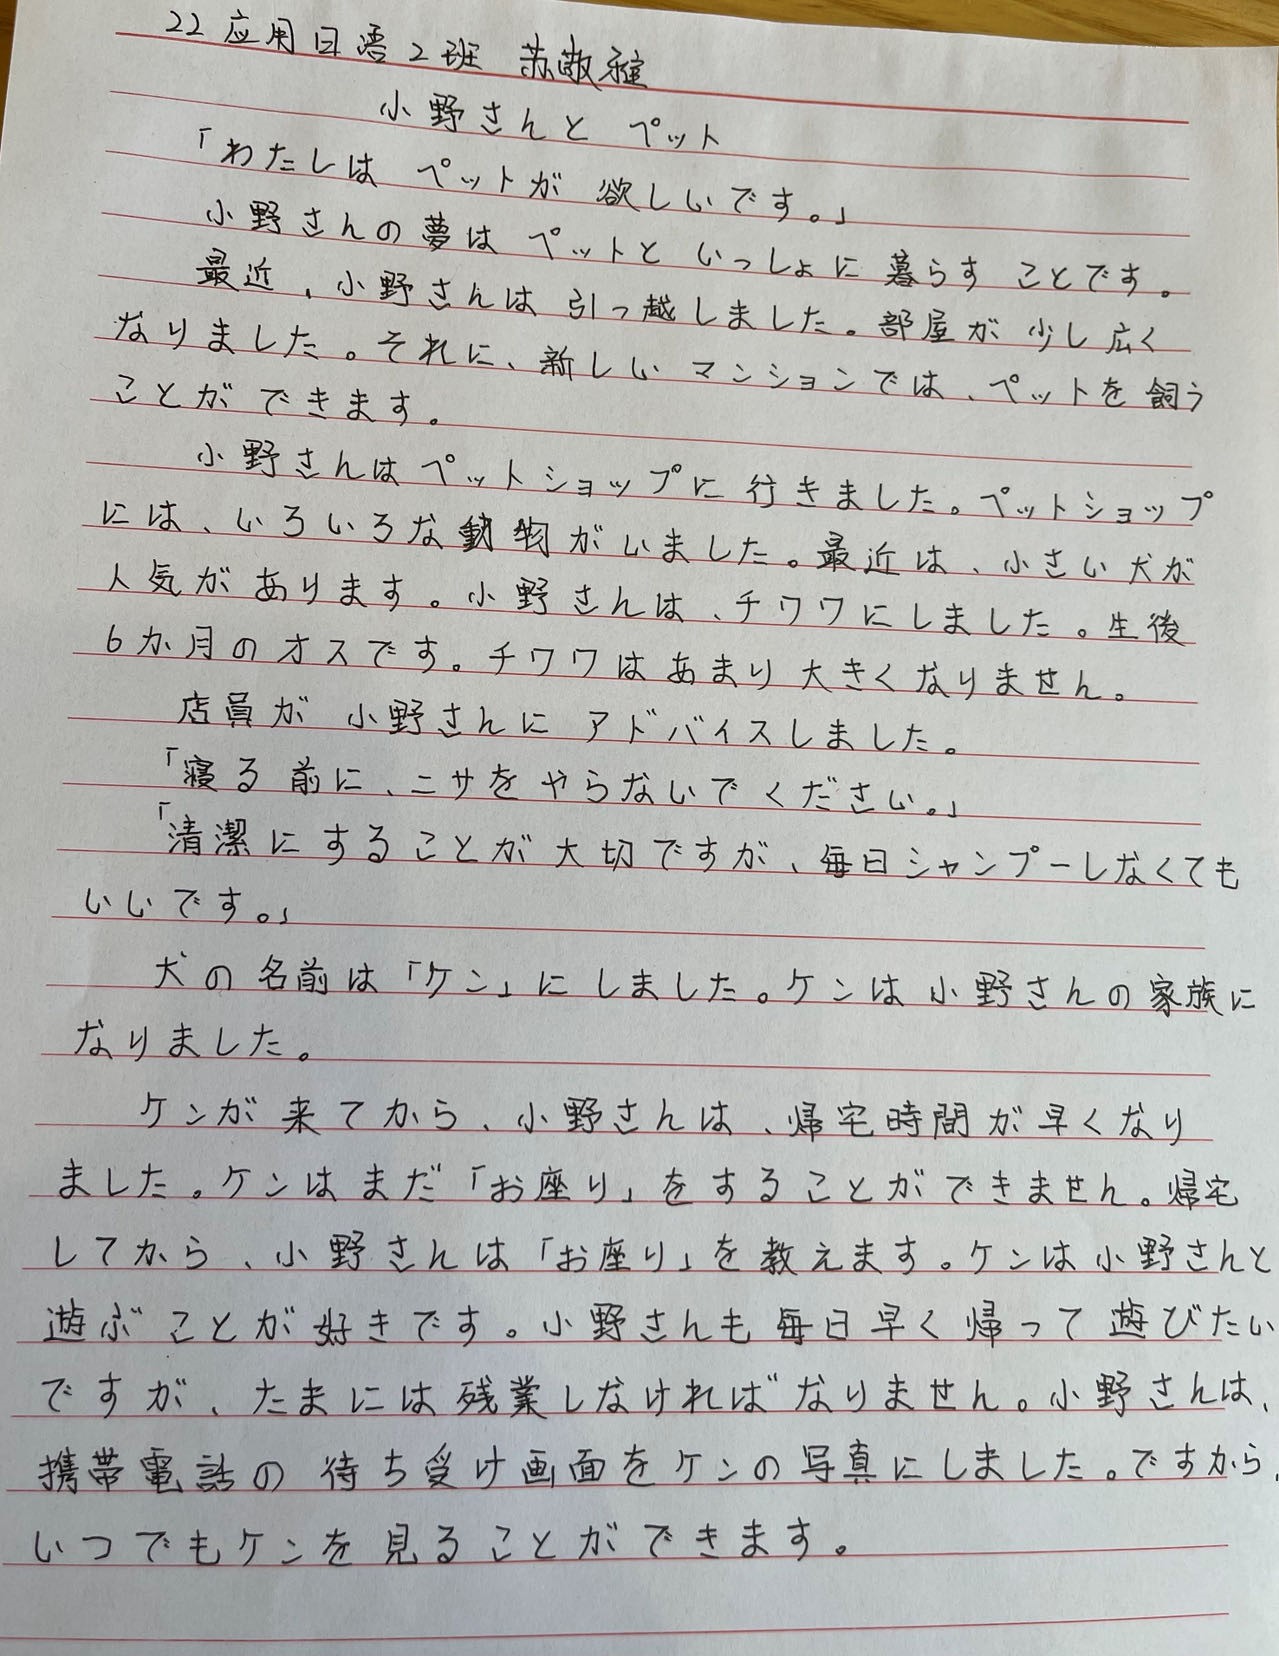 22应用日语2班 苏敬雅
小野さんと ペット
「わたしは ペットが 欲しいです。」
小野さんの夢は ペットと いっしょに 暮らす ことです。
最近、小野さんは 引っ越しました。部屋が 少し広く
なりました。それに、新しい マンションでは、ペットを 飼う
ことが できます。
小野さんは ペットショップに 行きました。ペットショップ
には、いろいろな 動物がいました。最近は、小さい犬が
人気が あります。小野さんは、チワワにしました。生後
6か月の オスです。チワワは あまり 大きくなりません。
店員が 小野さんに アドバイスしました。
「寝る 前に、ニサを やらないで ください。」
「清潔に することが 大切ですが、毎日シャンプーしなくても
いいです。」
犬の 名前は「ケン」に しました。ケンは 小野さんの 家族に
なりました。
ケンが 来てから、小野さんは、帰宅時間が 早くなり
ました。ケンは まだ「お座り」を することが できません。帰宅
してから、小野さんは「お座り」を 教えます。ケンは 小野さんと
遊ぶ ことが 好きです。小野さんも 毎日 早く 帰って 遊びたい
ですが、たまには 残業しなければ なりません。小野さんは、
携帯電話の 待ち受け画面を ケンの 写真に しました。ですから、
いつでも ケンを 見る ことが できます。